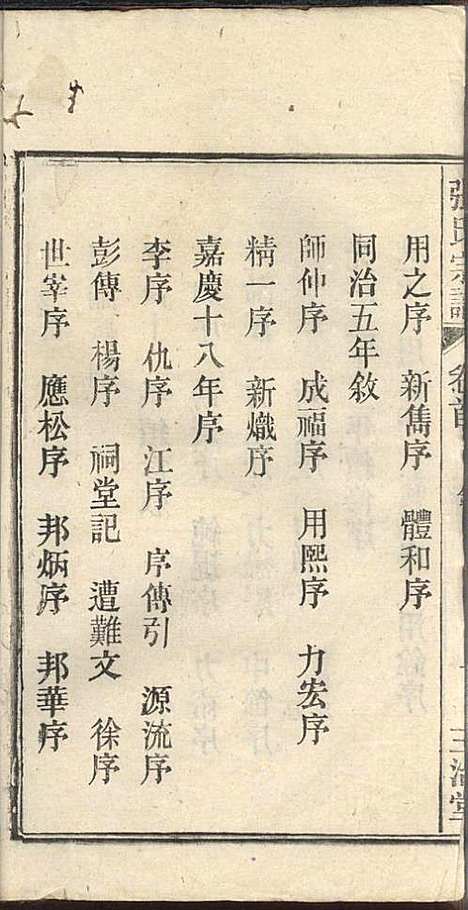 張氏宗譜 卷首
三治堂
用之序 新雋序 體和序
同治五年敘
師仲序 成福序 用熙序 力宏序
精一序 新熾序
嘉慶十八年序
李序 仇序 江序 序傳引 源流序
彭傳 楊序 祠堂記 遭難文 徐序
世宰序 應松序 邦炳序 邦華序